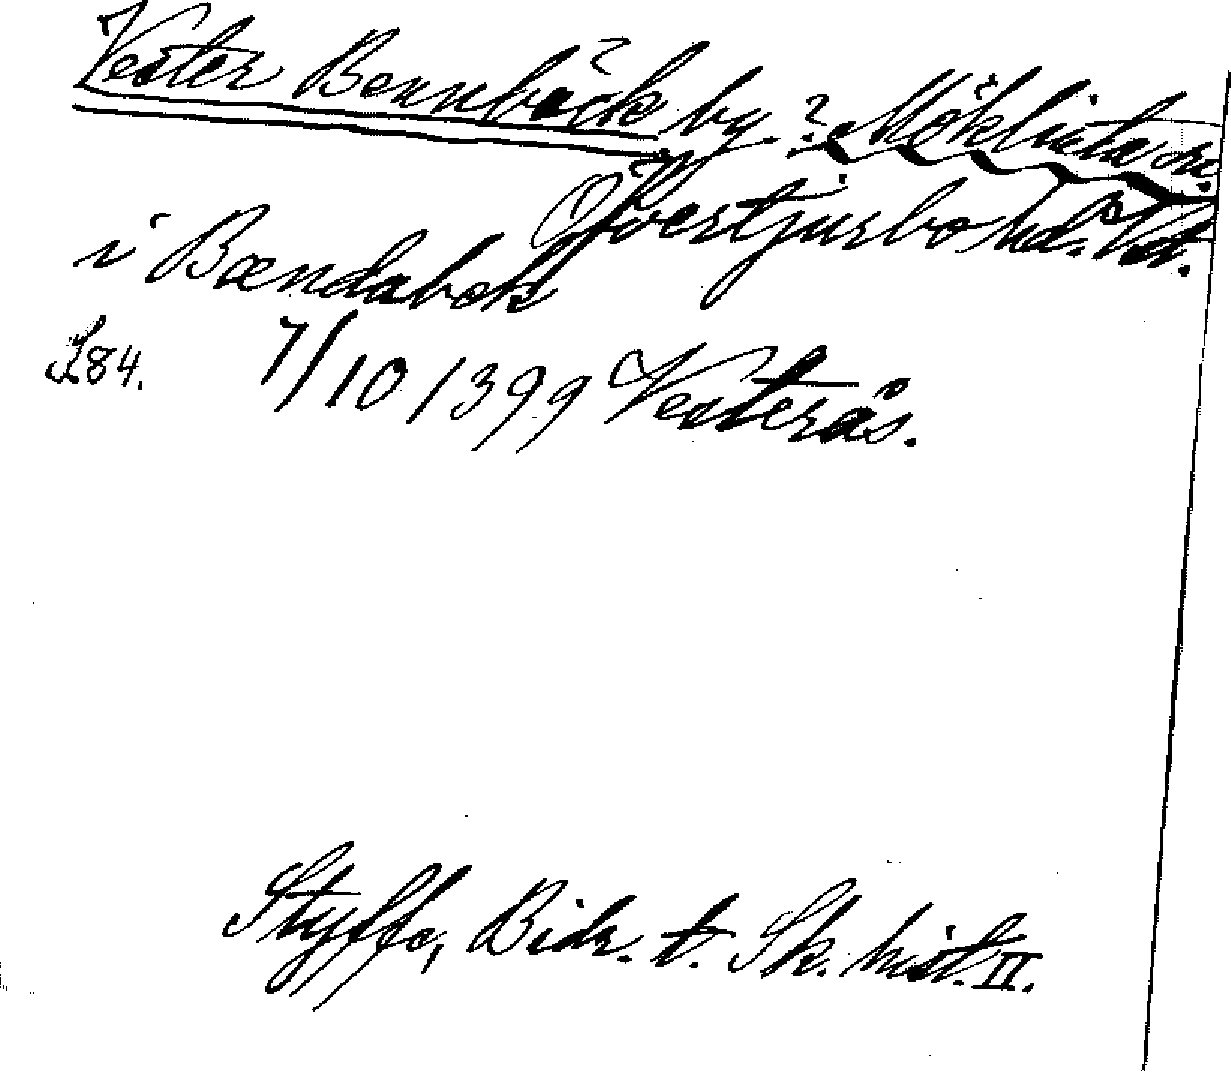 Vester Bennbäck by.? Möklinta sn.
Öfvertjurbo hd. Vstm.
i Bændabek
S. 84. 7/10 1399 Vesterås.
Styffe, Bidr. t. Sk. hist. II.